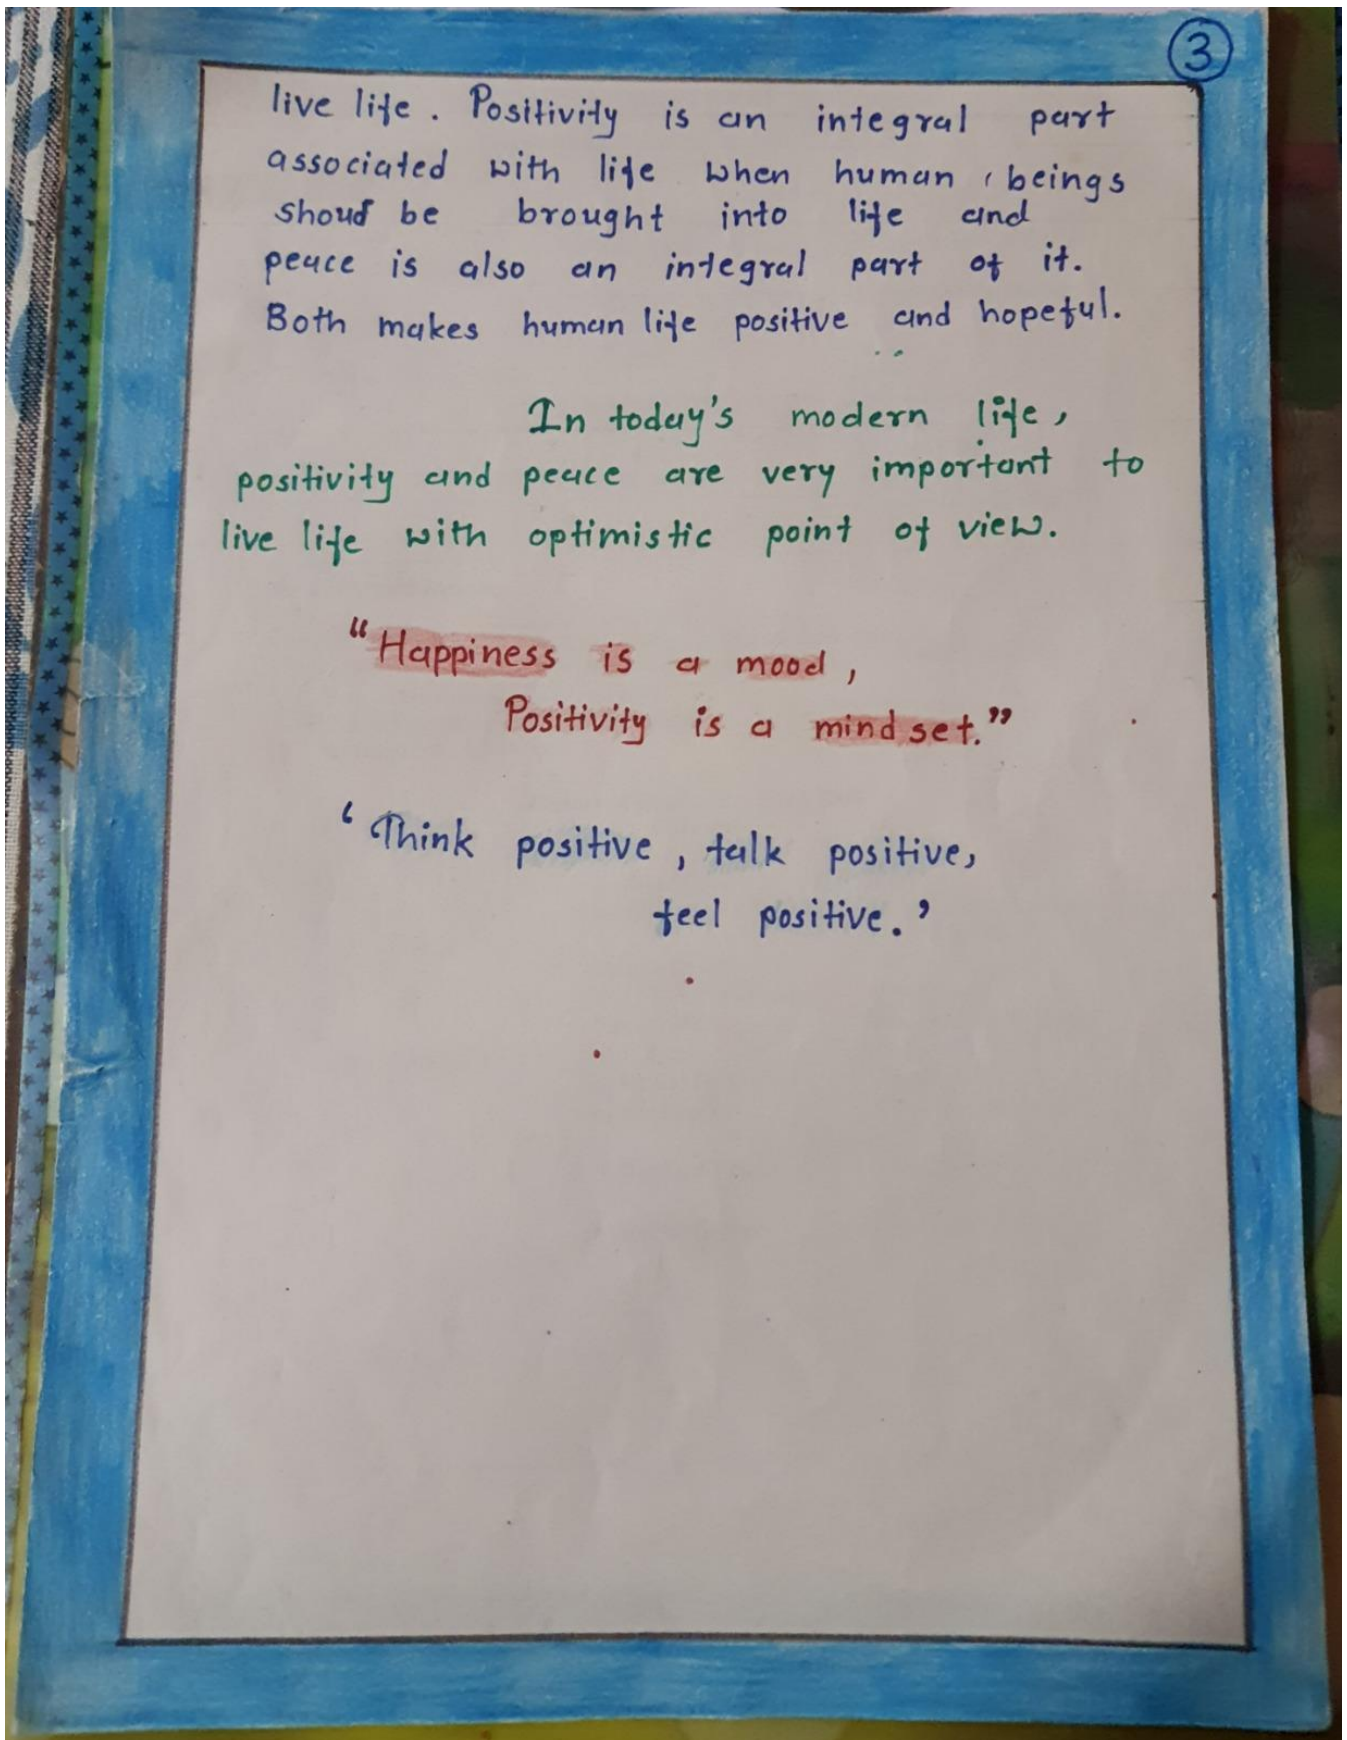 3
live life. Positivity is an integral part
associated with life when human beings
shoud be brought into life and
peace is also an integral part of it.
Both makes human life positive and hopeful.
In today's modern life,
positivity and peace are very important to
live life with optimistic point of view.
"Happiness is a mood,
Positivity is a mind set."
'Think positive, talk positive,
feel positive.'